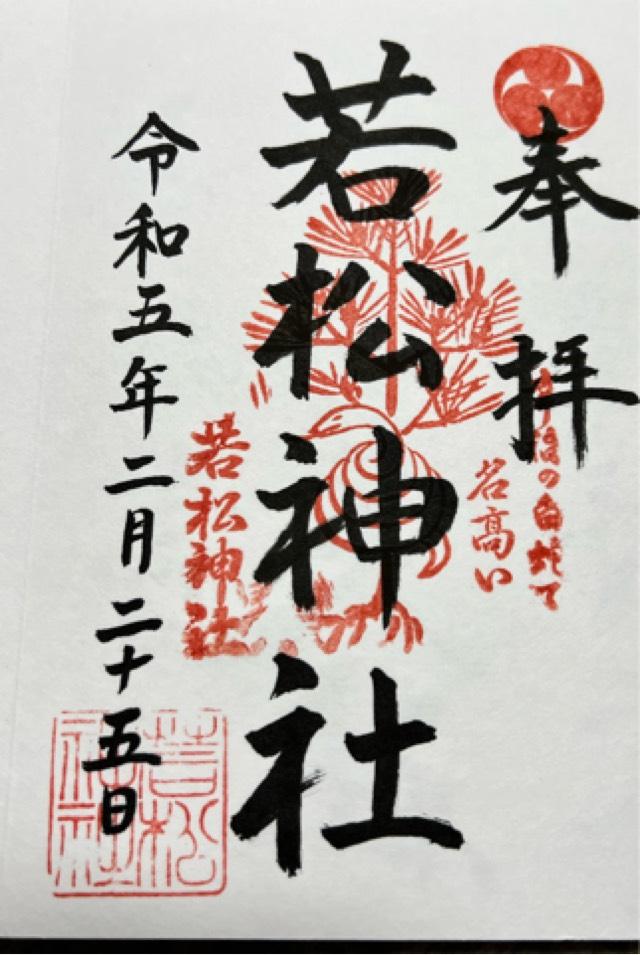 奉拝
幸福の白蛇で
名高い
若松神社
若松神社
令和五年二月二十五日
若松
神社